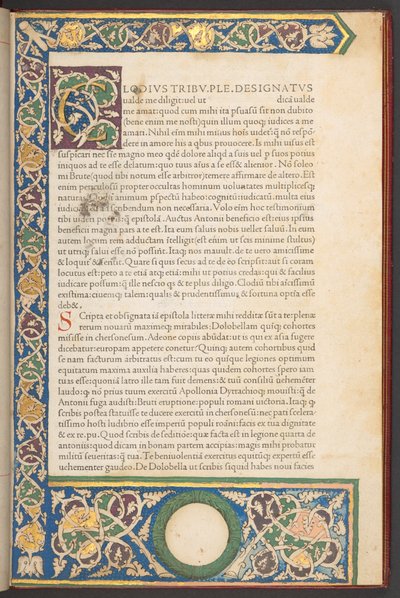 CLODIVS TRIBV. PLE. DESIGNATVS
ualde me diligit: uel ut dicā ualde
me amat: quod cum mihi ita ꝑsuasū sit non dubito
(bene enim me nosti) quin illum quoq; iudices a me
amari. Nihil eīm mihi minus hoīs uidet̄ q̄ nō respō
dere in amore his a qbus prouocere. Is mihi uisus est
suspicari nec sie magno meo qdē dolore aliqd a suis uel ꝑ suos potius
iniquos ad te esse delatum: quo tuus aīus a se esset alienior. Nō soleo
mi Brute (quod tibi notum esse arbitror) temere affirmare de altero. Est
enim periculosū propter occultas hominum uoluntates multiplicesq;
naturas animum ꝑspectū habeo: cognitū: iudicatū. multa eius
iudicia scribendum non necessaria. Volo eīm hoc testimonium
tibi uideri potius q̄ epistolā. Auctus Antonii beneficio est: eius ipsius
beneficii magna pars a te est. Ita eum saluis nobis uellet saluū. In eum
autem locum rem adductam itelligit (est enim ut scis minime stultus)
ut utriq; salui esse nō possint. Itaq; nos mauult. de te uero amicissime
& loquit̄ & sentit. Quare si quis secus ad te de eo scripserit: aut si coram
locutus est: peto a te etiā atq; etiā: mihi ut potius credas: qui & facilius
iudicare possum: q̄ ille nescio qs & te plus diligo. Clodiū tibi aīcissimū
existima: ciuemq; talem: qualis & prudentissimus & fortuna optīa esse
deb&.
Scripta et obsignata iā epistola litteræ mihi redditæ sūt a te: plenæ
rerum nouarū maximeq; mirabiles: Dolobellam quīq; cohortes
misisse in chersonesum. Adeone copiis abūdat: ut is qui ex asia fugere
dicebatur: europam appetere conetur? Quinq; autem cohortibus quid
se nam facturum arbitratus est: cum tu eo quīque legiones optimum
equitatum maxima auxilia haberes: quas quidem cohortes spero iam
tuas esse: quoniā latro ille tam fuit demens: & tuū consiliū uehemēter
laudo: q̄ nō prius tuum exercitū Apollonia Dyrrachioq; mouisti: q̄ de
Antonii fuga audisti: Bruti eruptione: populi romani uictoria. Itaq; q̄
scribis postea statuisse te ducere exercitū in chersonesū: nec pati scelera
tissimo hosti ludibrio esse imperiū populi roāni: facis ex tua dignitate
& ex re. pu. Quod scribis de seditiōe: quæ facta est in legione quarta de
antoniis: quod dicam in bonam partem accipias: magis mihi probatur
militū seueritas: q̄ tua. Te beniuolentiā exercitus equitūq; expertū esse
uehementer gaudeo. De Dolobella ut scribis siquid habes noui facies